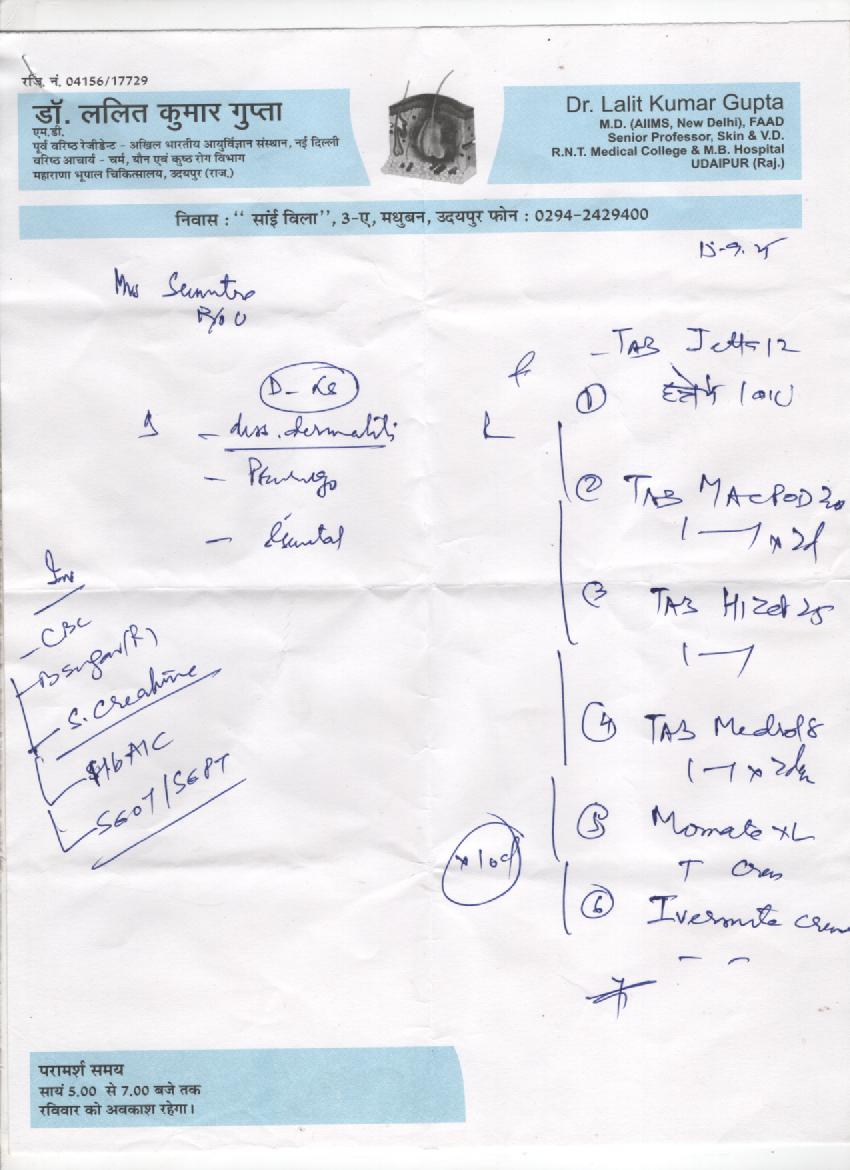 रजि. नं. 04156/17729
डॉ. ललित कुमार गुप्ता
एम.डी.
पूर्व वरिष्ठ रेजीडेन्ट - अखिल भारतीय आयुर्विज्ञान संस्थान, नई दिल्ली
वरिष्ठ आचार्य - चर्म, यौन एवं कुष्ठ रोग विभाग
महाराणा भूपाल चिकित्सालय, उदयपुर (राज.)
Dr. Lalit Kumar Gupta
M.D. (AIIMS, New Delhi), FAAD
Senior Professor, Skin & V.D.
R.N.T. Medical College & M.B. Hospital
UDAIPUR (Raj.)
निवास : ‘‘ सांई विला’’, 3-ए, मधुबन, उदयपुर फोन : 0294-2429400
15-9-25
Mrs
D-
- diss. dermatitis
Inv
- CBC
- B Sugar (R)
- S. Creatine
- HbA1C
- SGOT/SGPT
- TAB
①
② TAB MACPOD 200
1 — 1 x
③ TAB HIZet 25
1 — 1
④ TAB Medrol 8
1 — 1 x
⑤ Momate XL
Cream
⑥ Ivermite cream
x 10d
परामर्श समय
सायं 5.00 से 7.00 बजे तक
रविवार को अवकाश रहेगा।